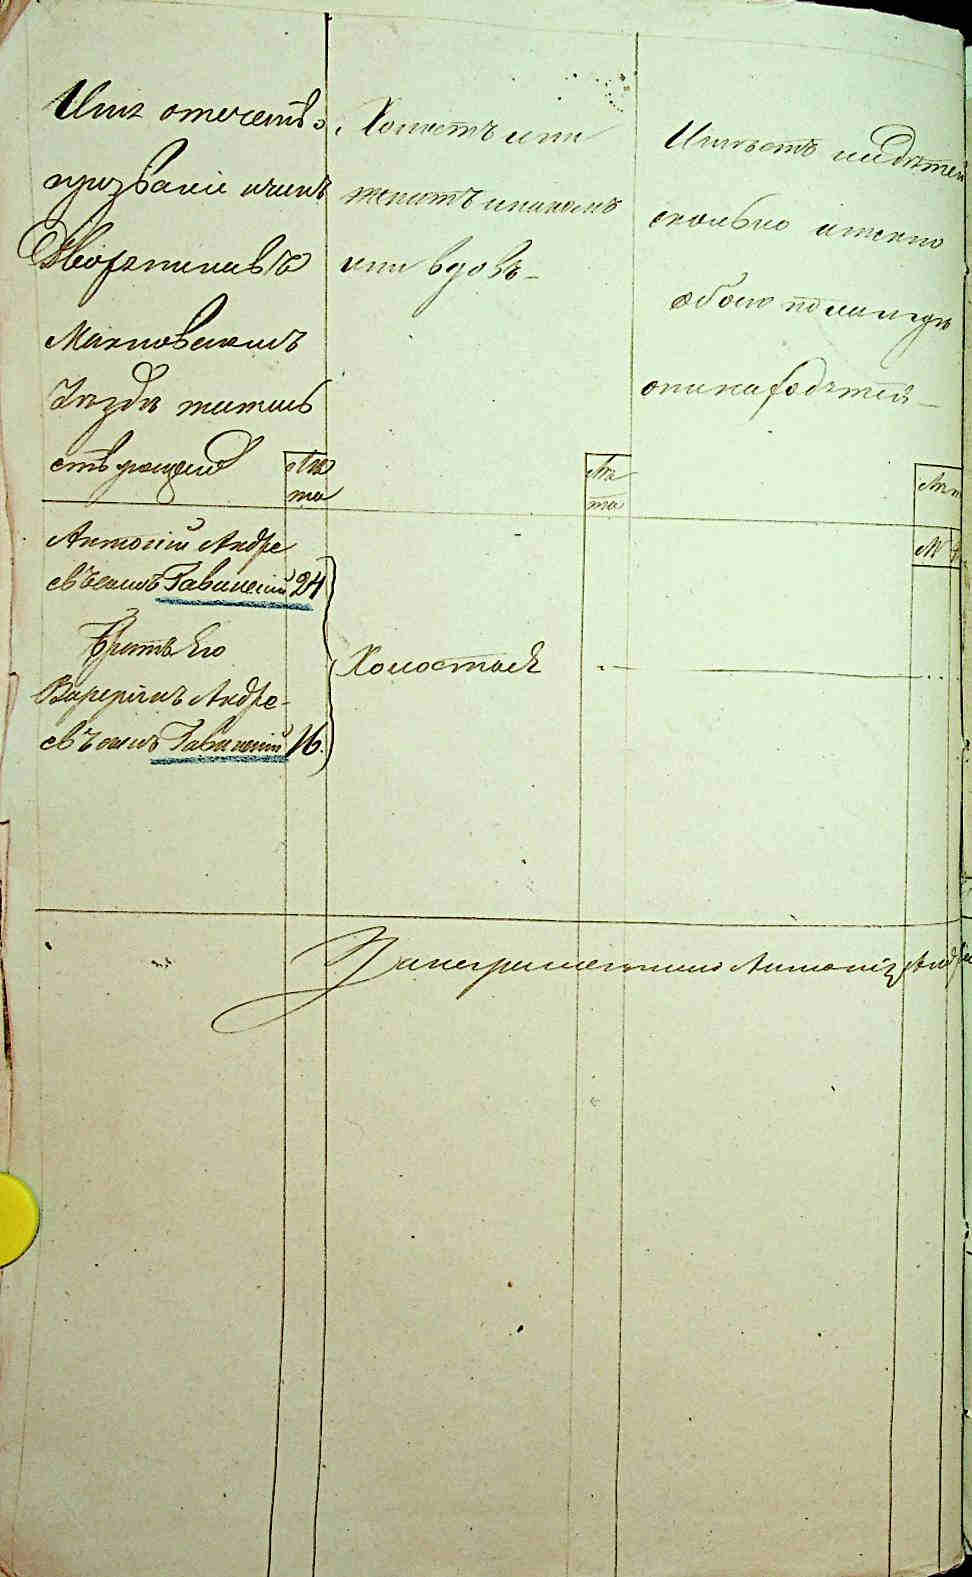 Имя отечество
прозваніе и чинъ
Дворяниновъ
Махновскаго
Уезда жител
ствующаго
Ле
та
Холостъ или
женатъ и на комъ
или вдовъ
Ле
та
Имеетъ ли детей
сколько и
обоего пола и где
они находятся
Лет
М
Антоній Андре
евъ сынъ Гавинскій 24
Братъ Его
Валеріанъ Андре-
евъ сынъ Гавинскій 16.
Холостые
Антоній Андре